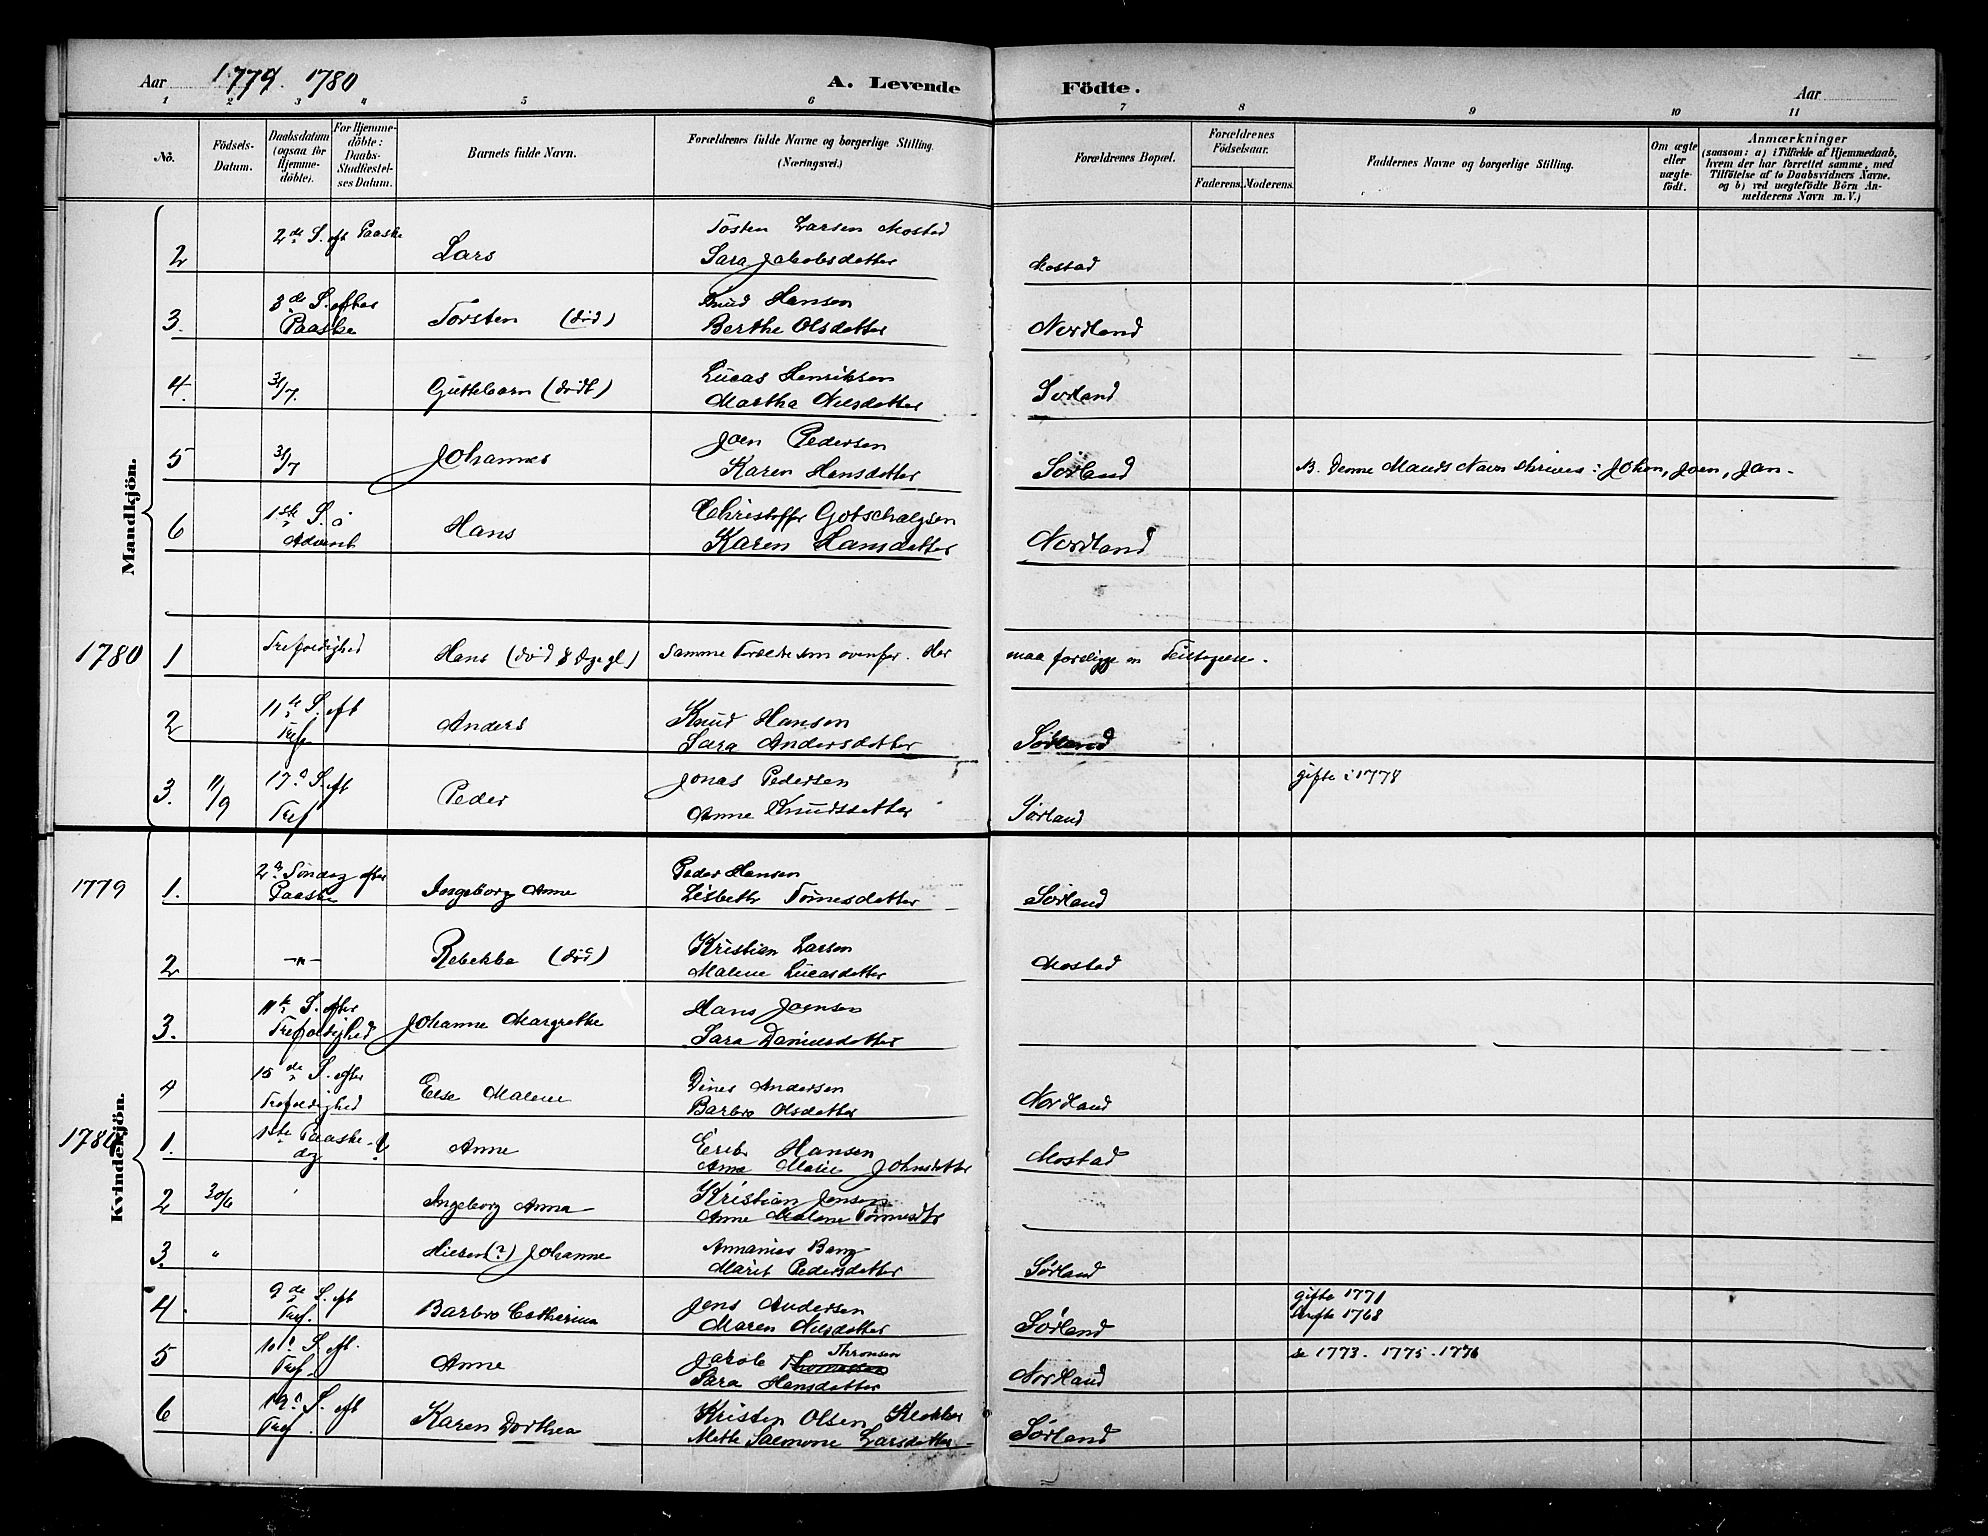 Aar 1779. 1780
A. Levende Födte.
Aar
1 2 3 4 5 6 7 8 9 10 11
No.
Födsels-Datum.
Daabsdatum (ogsaa for Hjemme-döbte).
For Hjemme-döbte: Daabs-Stadfæstel-ses Datum.
Barnets fulde Navn.
Forældrenes fulde Navne og borgerlige Stilling. (Næringsvei.)
Forældrenes Bopæl.
Forældrenes Födselsaar.
Faderens. Moderens.
Faddernes Navne og borgerlige Stilling.
Om ægte eller uægte födt.
Anmærkninger
(saasom: a) i Tilfælde af Hjemmedaab, hvem der har forrettet samme, med Tilföielse af to Daabsvidners Navne. og b) ved uægtefödte Börn An-melderens Navn m. V.)
Mandkjön.
2 2de S. eft Paaske Lars Tosten Larsen Mostad
Sara Jakobsdatter Mostad
3. 3de S. efter Paaske Torsten (död) Knud Hansen
Berthe Olsdatter Nordland
4. 31/7. Guttebarn (dödt) Lucas Henriksen
Martha Nilsdatter Sörland
5 31/7 Johannes Joen Pedersen
Karen Hansdatter Sörland NB. Denne Mands Navn skrives: Johan, Joen, Jon.
6 1ste S. i Advent Hans Christoffer Gotschalgsen
Karen Hansdatter Nordland
1780 1 Trefoldighed Hans (död 8 dge gl) Samme Foreldre som ovenfor. Her maa foreligge en Feiltagelse.
2 11te S. eft Tref Anders Knud Hansen
Sara Andersdatter Sörland
3. 11/9 17d S. eft Tref Peder Jonas Pedersen
Anne Knudsdatter Sörland gifte i 1778
Kvindekjön.
1779 1. 2d Söndag efter Paaske Ingeborg Anne Peder Hansen
Lisbeth Tönnesdatter Sörland
2 -"- Rebekka (död) Kristian Larsen
Malene Lucasdatter Mostad
3. 11te S. efter Trefoldighed Johanne Margrethe Hans Joensen
Sara Danielsdatter
4 15de S. efter Trefoldighed Else Malene Dines Andersen
Barbro Olsdatter Nordland
1780 1. 1ste Paaskedag Anne Erik Hansen
Ane Marie Johnsdatter Mostad
2 30/6 Ingeborg Anna Kristian Jensen
Anne Malene Tönnesdtr
3. " (?) Johanne Annanias Bang
Marit Pedersdatter Sörland
4. 9de S. eft Tref. Barbro Catharina Jens Andersen
Maren Nilsdatter Sörland gifte 1771
1768
5 10d S. eft. Tref. Anne Jakob Thomassen Thronsen
Sara Hansdatter Nordland se 1773. 1775. 1776
6 19d S. eft Tref. Karen Dorthea Kristen Olsen Klokker
Mette Salmone Larsdatter Sörland